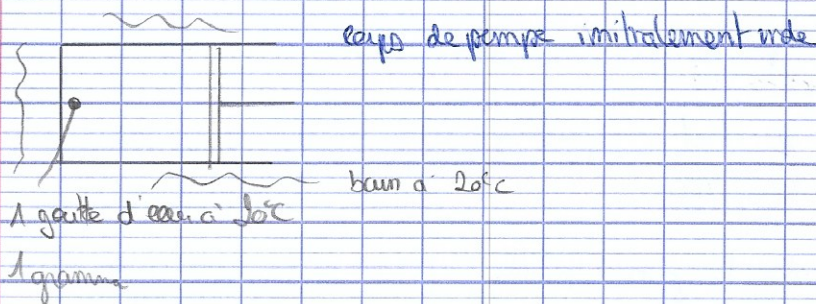 corps de pompe initialement vide
bain à 20°C
1 goutte d'eau à 20°C
1 gramme